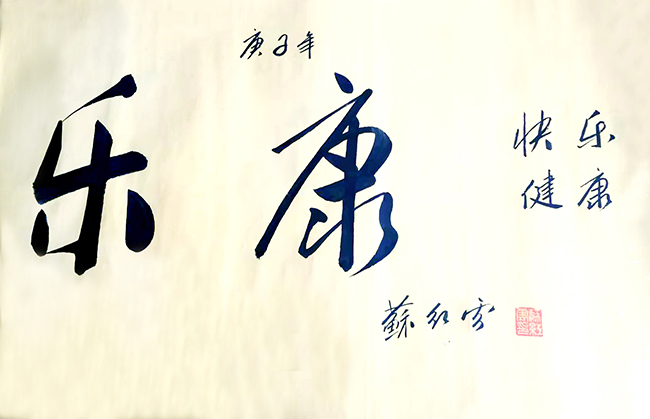 庚子年
乐康
快乐
健康
蘇红雪